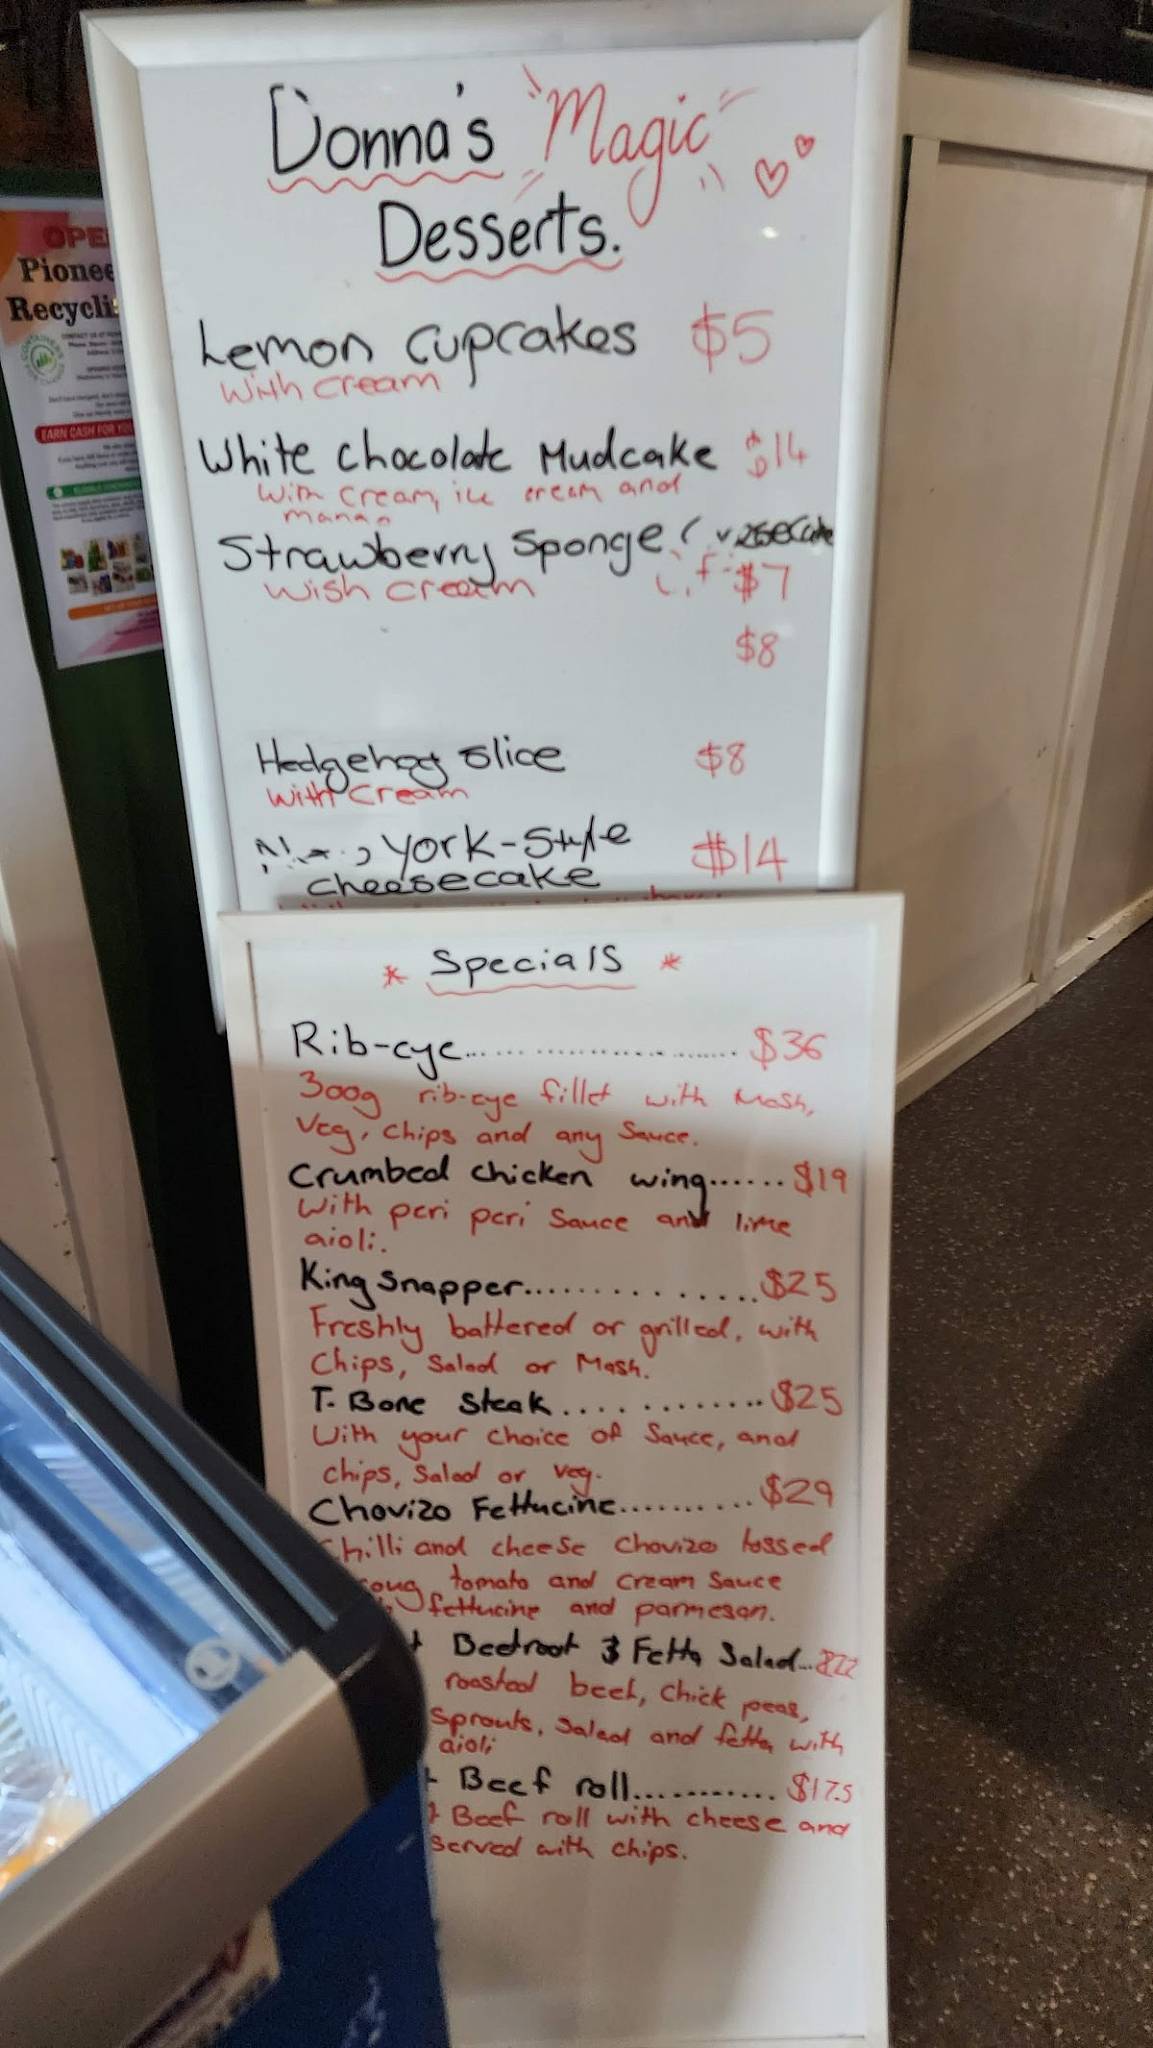 Donna's "Magic"
Desserts.
Lemon cupcakes $5
with cream
White chocolate Mudcake $14
with cream, ice cream and
mango
Strawberry Sponge
wish cream $7
$8
Hedgehog slice $8
with cream
York-Style
cheesecake $14
* Specials *
Rib-eye... $36
300g rib-eye fillet with Mash,
Veg, chips and any Sauce.
Crumbed chicken wing...... $19
With peri peri Sauce and lime
aioli.
King snapper.............. $25
Freshly battered or grilled, with
Chips, Salad or Mash.
T-Bone Steak............ $25
With your choice of Sauce, and
chips, Salad or veg.
Chorizo Fettucine.......... $29
Chilli and cheese chorizo tossed
tomato and cream Sauce
fettucine and parmesan.
Beetroot & Fetta Salad... $22
roasted beet, chick peas,
Sprouts, Salad and fetta with
aioli
Beef roll........... $17.5
Beef roll with cheese and
served with chips.
OPE
Pionee
Recycli
EARN CASH FOR YO